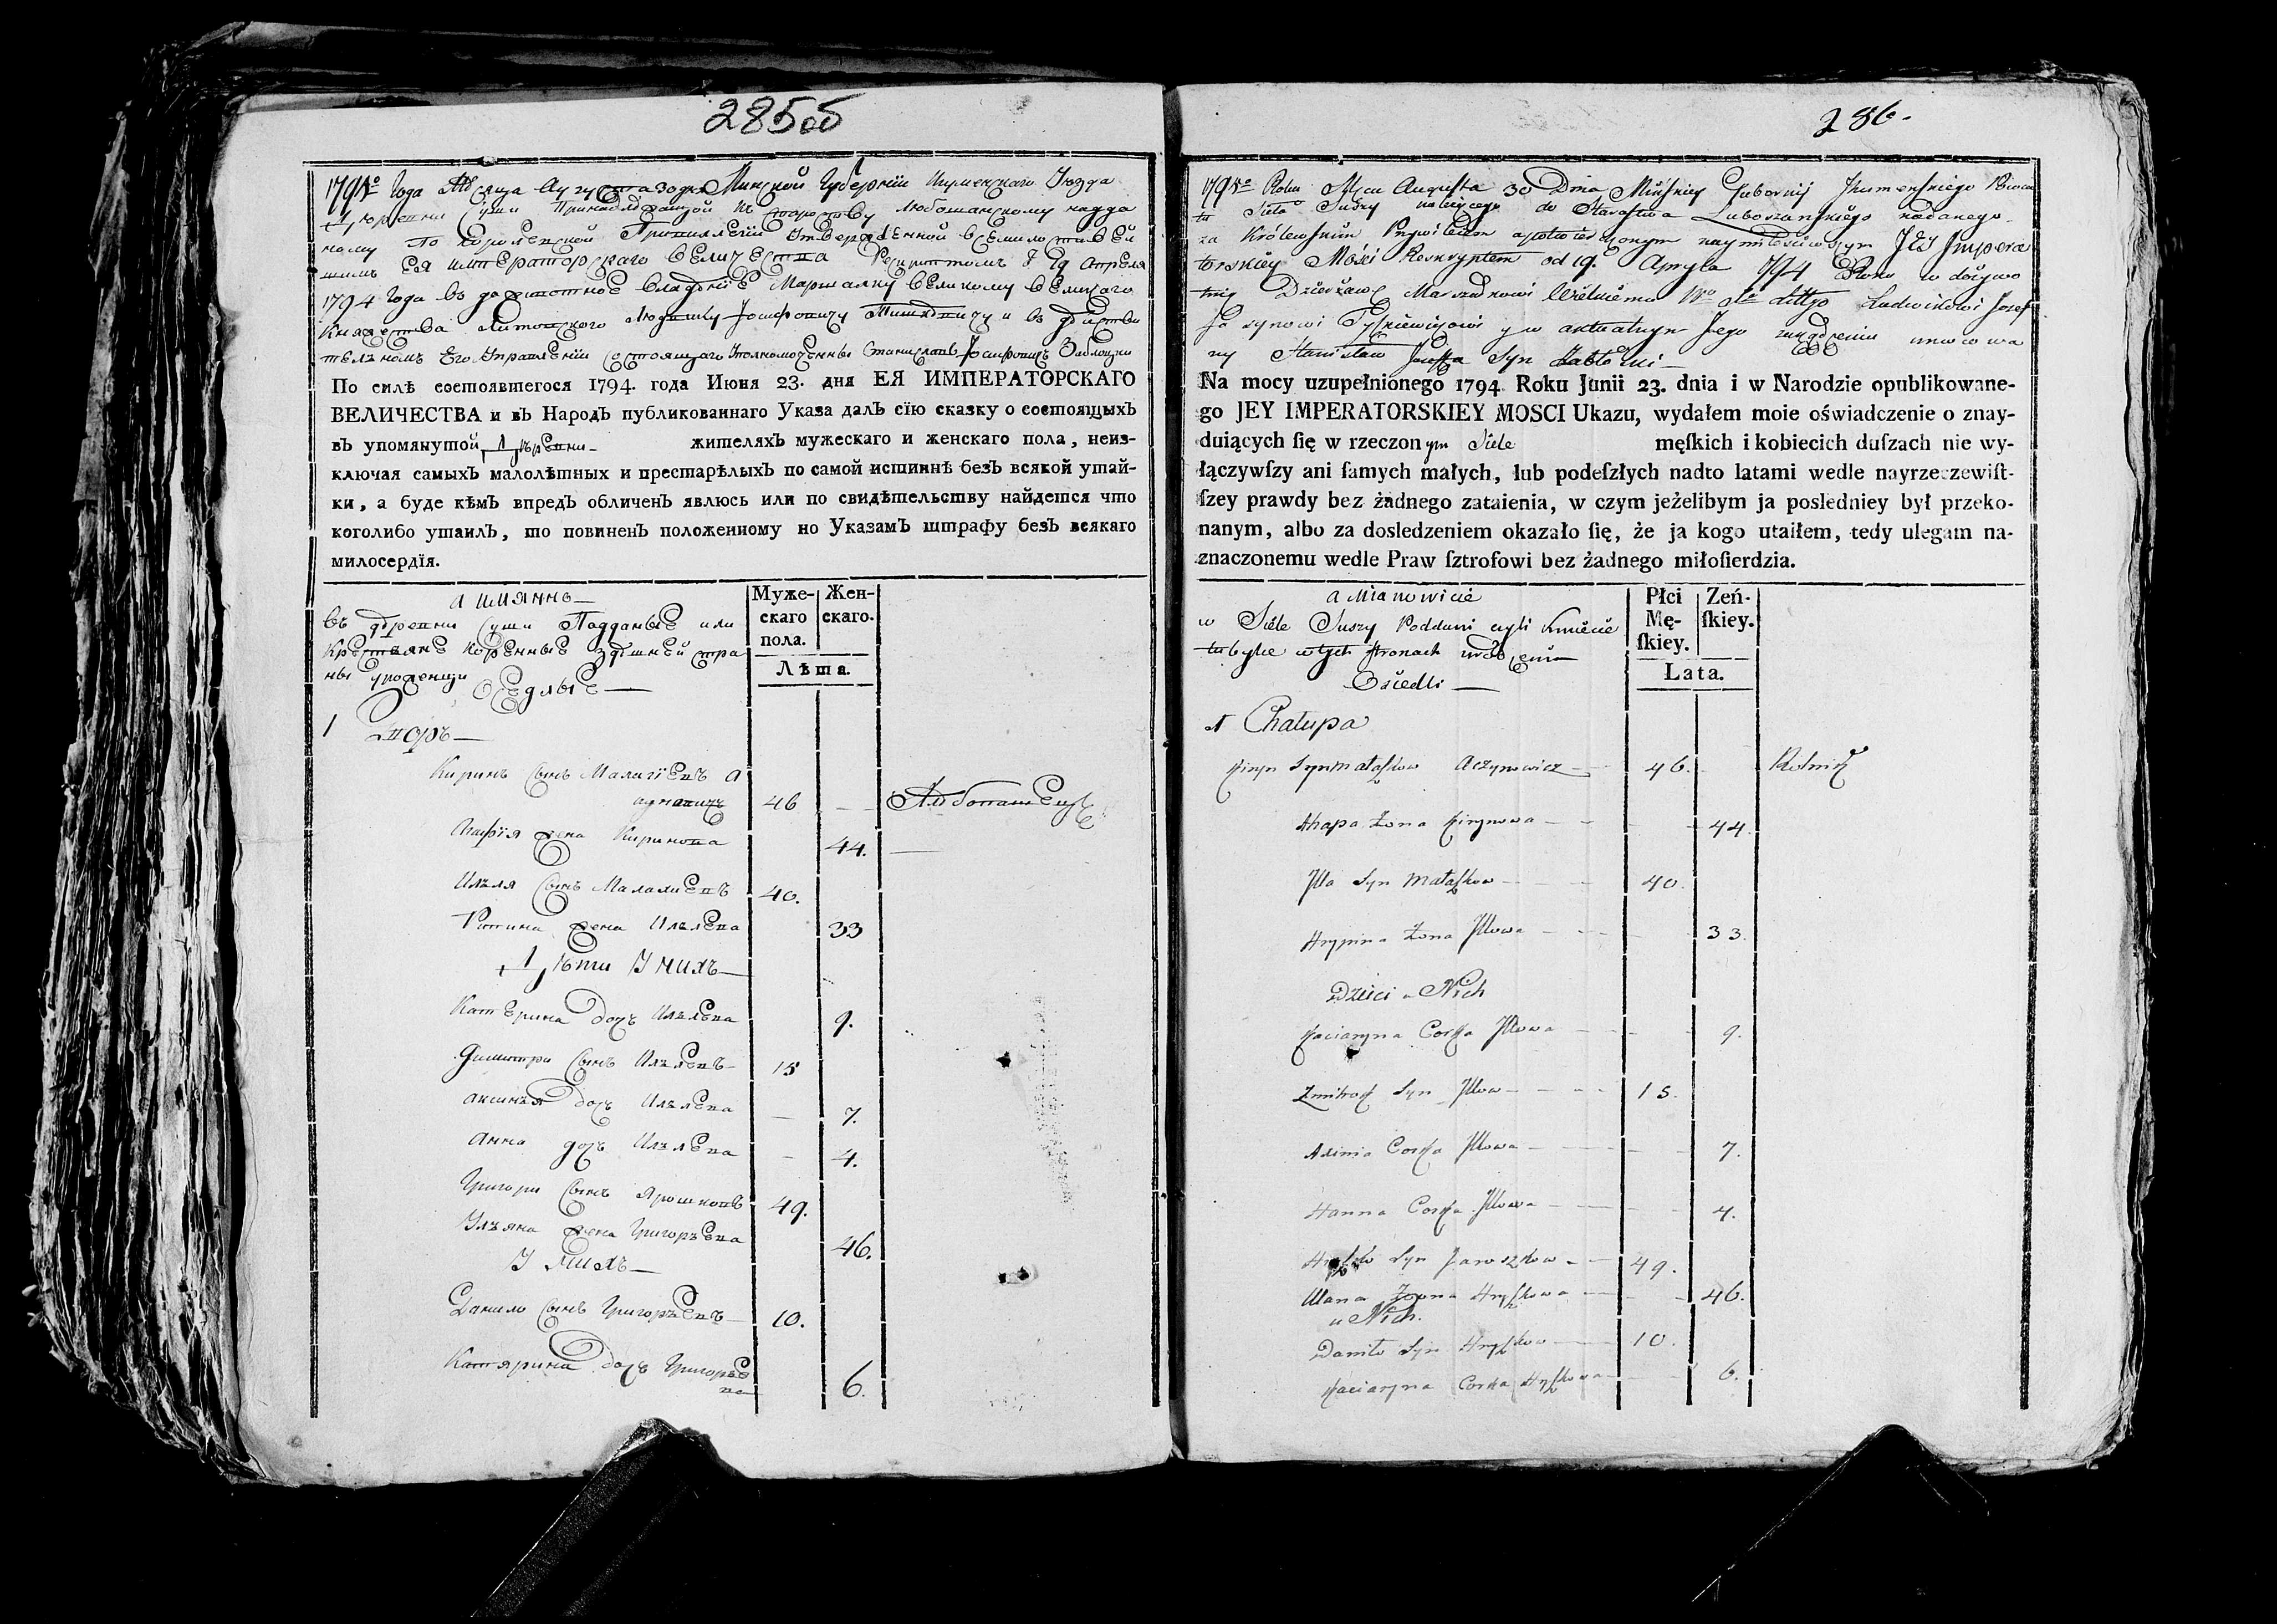 285об
1795го Года Мѣсяца Августа 30 дня Минской Губернiи Игуменскаго Уюзда
деревни Суши Принадлежащой къ староству Любошанскому надда
ному по Королевской Привилегiи Утвержденной всемилостивей
шимъ Ея императорскаго величества Рескриптомъ 19 Апреля
1794 Года въ досмотное владѣнiе Маршалку великому великаго
Княжества Литовскаго Людвику Iосифовичу Тишкевичу и въ действи
телномъ Его Управленiи состоящаго Уполномоченны Станиславъ Iосифовичъ Заблоцки
По силѣ состоявшегося 1794. года Июня 23. дня ЕЯ ИМПЕРАТОРСКАГО
ВЕЛИЧЕСТВА и въ НародЪ публикованнаго Указа далЪ сїю сказку о состоящыхЪ
въ упомянутой деревни жителяхЪ мужескаго и женскаго пола, неиз-
ключая самыхЪ малолѣтных и престарѣлыхЪ по самой истиннѣ безЪ всякой утай-
ки, а буде кѣмЪ впредЪ обличенЪ явлюсь или по свидѣтельству найдется что
коголибо утаилЪ, то повиненЪ положенному по УказамЪ штрафу безЪ всякаго
милосердїя.
а имянно
въ деревни Суши Подданые или
Крестьяне коренные здешней стра
ны уроженцы
Оседлые
Муже-
скаго
пола.
Жен-
скаго.
Лѣта.
1 Дворъ
Киринъ сынъ Малахiевъ А
дчиновичъ 46 Любошанецъ
Агафiя жена Киринова 44.
Илья сынъ Малахиевъ 40.
жена Ильлева 33
Дѣти У нихъ
Катерина дочъ Ильлева 9.
Димитри сынъ Ильлевъ 15
аксинья дочъ Ильлева 7.
анна дочъ Ильлева 4.
Григори сынъ Ярошковъ 49.
Ульяна жена Григорьева 46.
У нихъ
Данило сынъ Григорьевъ 10.
Катярина дочъ Григорье
ва 6.
286.
1795go Roku Mca Augusta 30 Dnia Mińskiey Gubernij Jhumenskiego Powia
tu Sieła Suszy należącego do Starostwa Luboszanskiego nadanego
za Królewskim Przywileiem a potwierdzonym naymiłościwszym JEy Impera
torskiey Mości Reskryptem od 19. Apryla 1794 Roku w dożywo
tnią Dzierżawę Marszałkowi Wielkiemu Wo Xa Littgo Ludwikowi Josef
fa synowi Tyszkiewiczowi y w aktualnym Jego zarządzeniu umocowa
ny Stanisław Joseffa Syn Zabłocki
Na mocy uzupełnionego 1794 Roku Junii 23. dnia i w Narodzie opublikowane-
go JEY IMPERATORSKIEY MOSCI Ukazu, wydałem moie oświadczenie o znay-
duiących ſię w rzeczonym Siele męſkich i kobiecich duſzach nie wy-
łączywſzy ani ſamych małych, lub podeſzłych nadto latami wedle nayrzeczewiſt-
ſzey prawdy bez żadnego zataienia, w czym jeżelibym ja posledniey był przeko-
nanym, albo za dosledzeniem okazało ſię, że ja kogo utaiłem, tedy ulegam na-
znaczonemu wedle Praw ſztrofowi bez żadnego miłoſierdzia.
a Mianowicie
w Siele Suszy Poddani czyli Kmiecie
tubylce w tych stronach urodzeni
Osiedli
Płci
Mę-
ſkiey.
Zeń-
ſkiey.
Lata.
1 Chałupa
Kiryn Syn Małaszkow Aczynowicz 46. Rolnik
Ahapa Żona Kirynowa 44.
Jlla Syn Małaszkow 40.
Hrypina Żona Jllowa 33.
Dzieci u Nich
Kaciaryna Corka Jllowa 9.
Zmitrok Syn Jllow 15.
Axinia Corka Jllowa 7.
Hanna Corka Jllowa 4.
Hryszko Syn Jaroszkow 49.
Ullana Żona Hryszkowa 46.
u Nich.
Daniło Syn Hryszkow 10.
Kaciaryna Corka Hryszkowa 6.